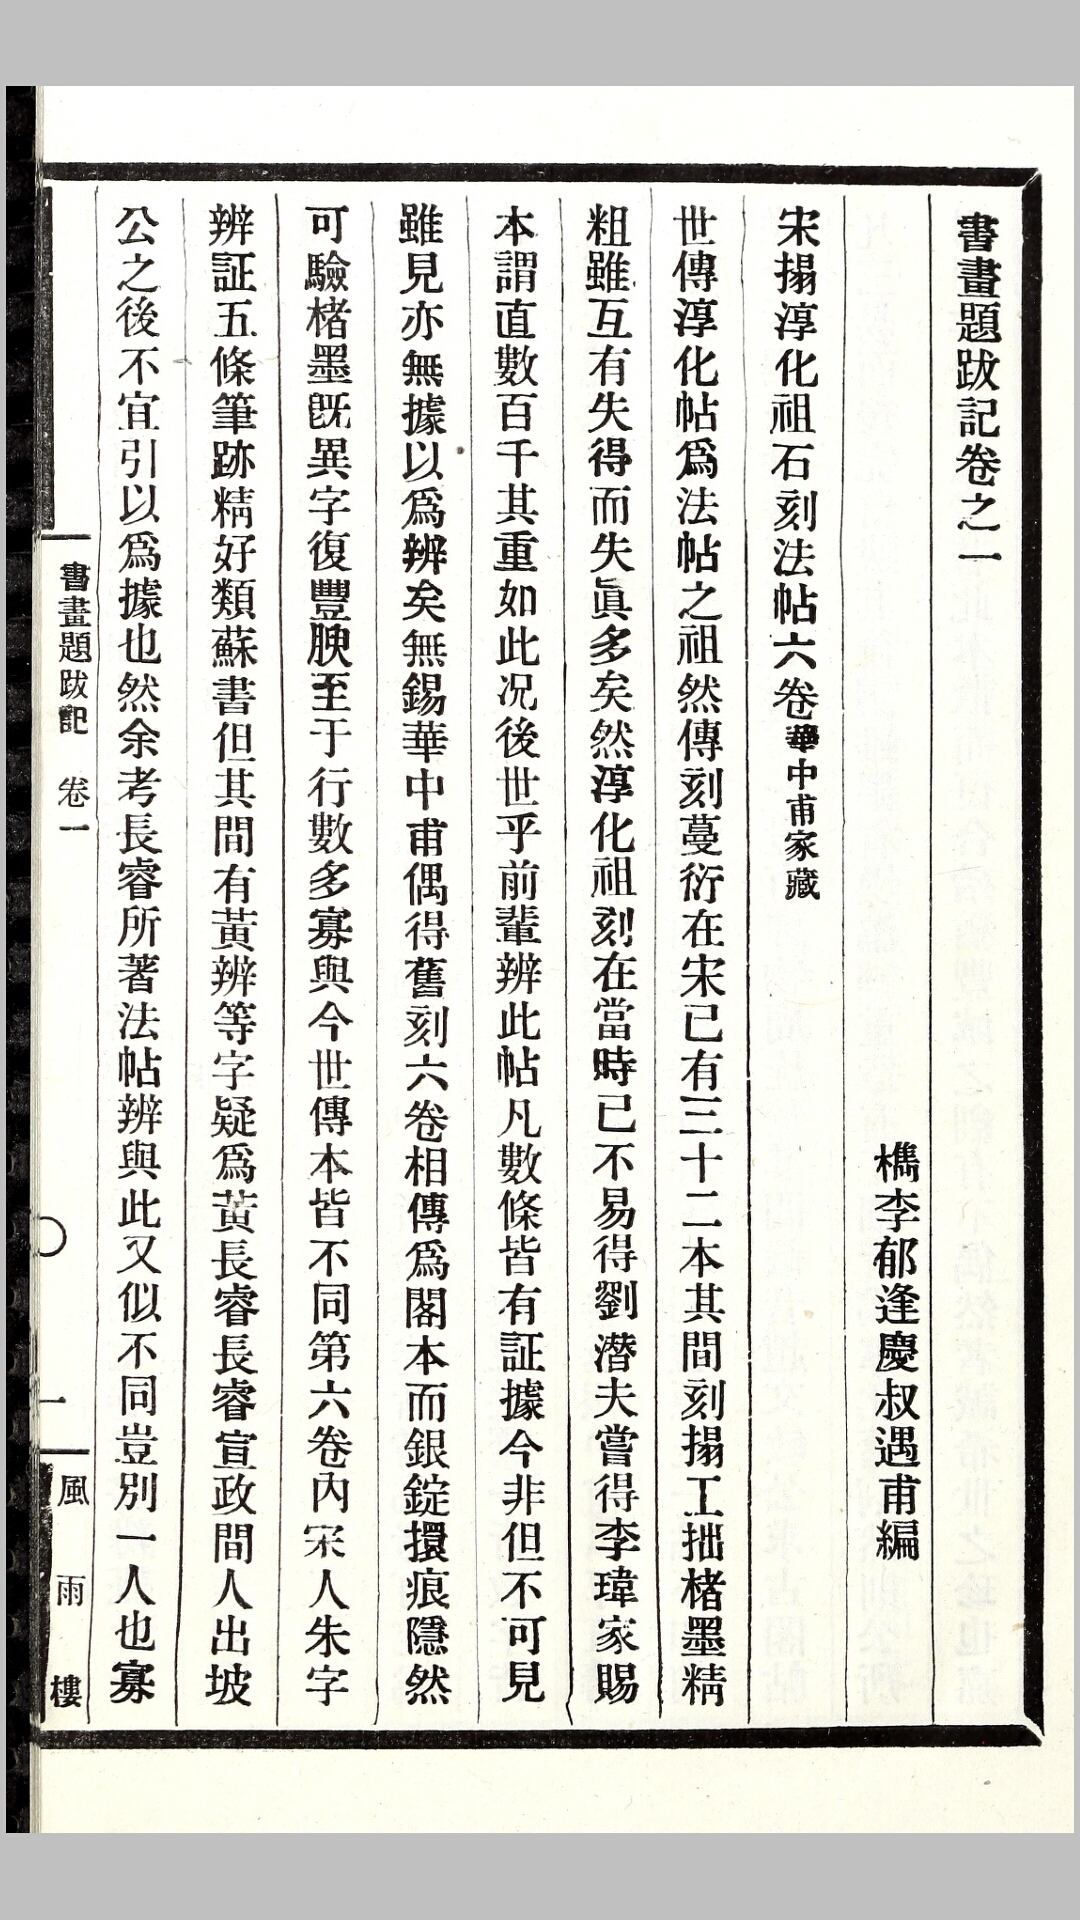 書畫題跋記卷之一
檇李郁逢慶叔遇甫編
宋搨淳化祖石刻法帖六卷華中甫家藏
世傳淳化帖爲法帖之祖然傳刻蔓衍在宋已有三十二本其間刻搨工拙楮墨精
粗雖互有失得而失眞多矣然淳化祖刻在當時已不易得劉潛夫嘗得李瑋家賜
本謂直數百千其重如此况後世乎前輩辨此帖凡數條皆有証據今非但不可見
雖見亦無據以爲辨矣無錫華中甫偶得舊刻六卷相傳爲閣本而銀錠擐痕隱然
可驗楮墨旣異字復豐腴至于行數多寡與今世傳本皆不同第六卷內宋人朱字
辨証五條筆跡精好類蘇書但其間有黃辨等字疑爲黃長睿長睿宣政間人出坡
公之後不宜引以爲據也然余考長睿所著法帖辨與此又似不同豈別一人也寡
書畫題跋記 卷一
一
風雨樓